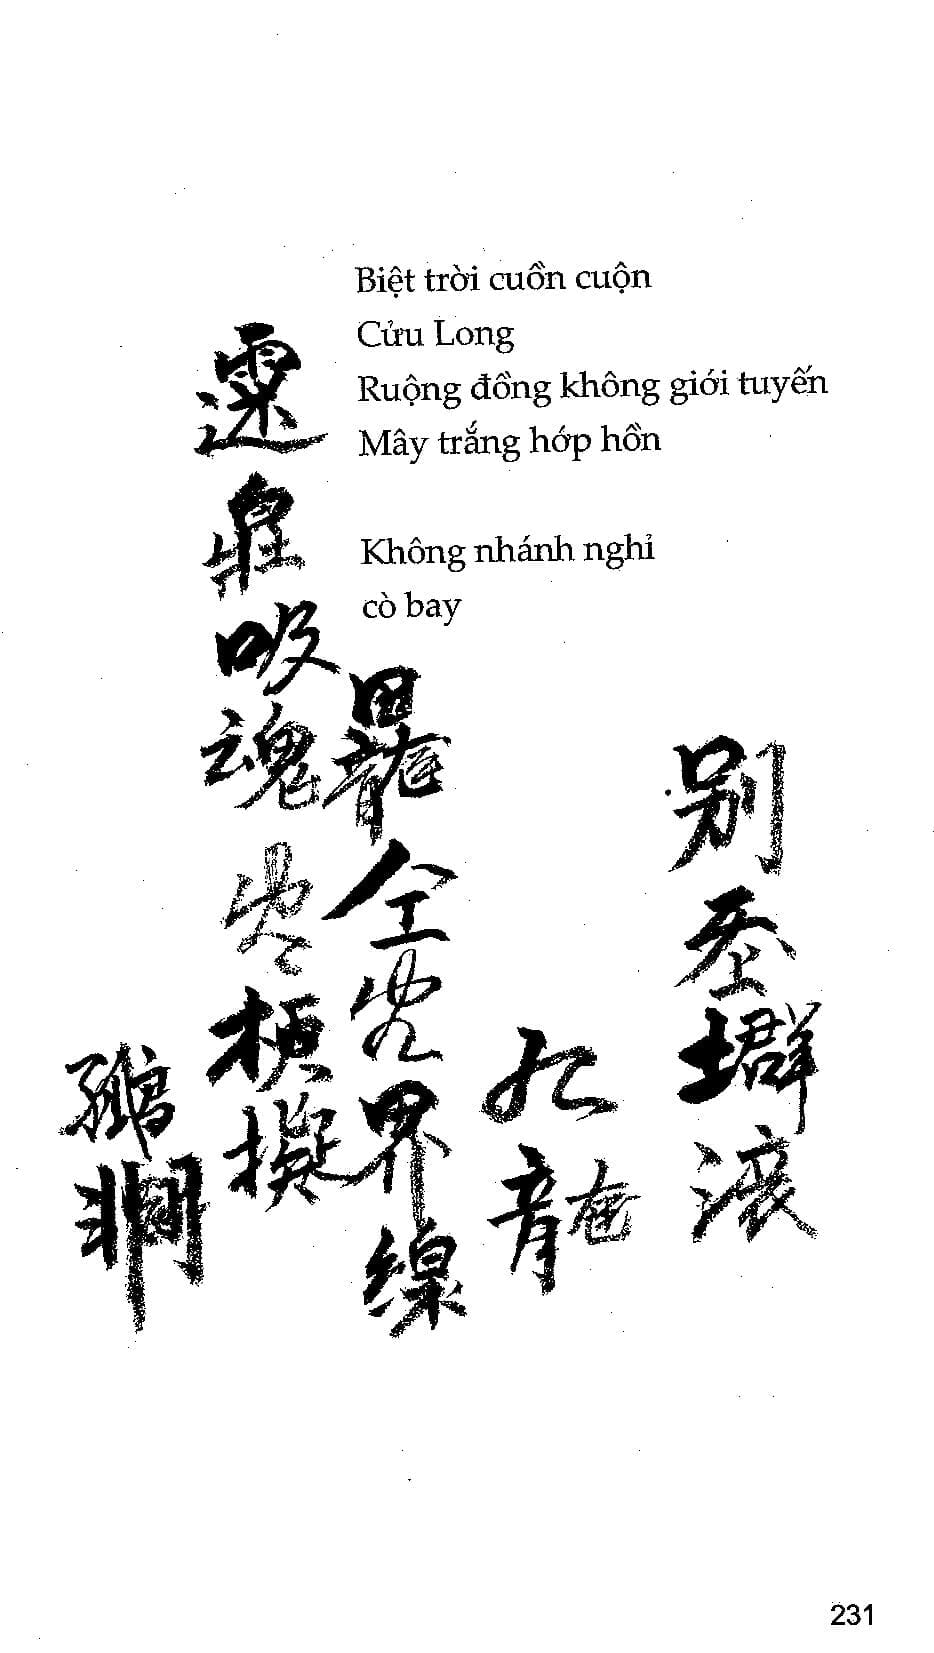 Biệt trời cuồn cuộn
Cửu Long
Ruộng đồng không giới tuyến
Mây trắng hớp hồn
Không nhánh nghỉ
cò bay
别𡗶滚
九龍
仝空界線
吸魂空梗擬
231